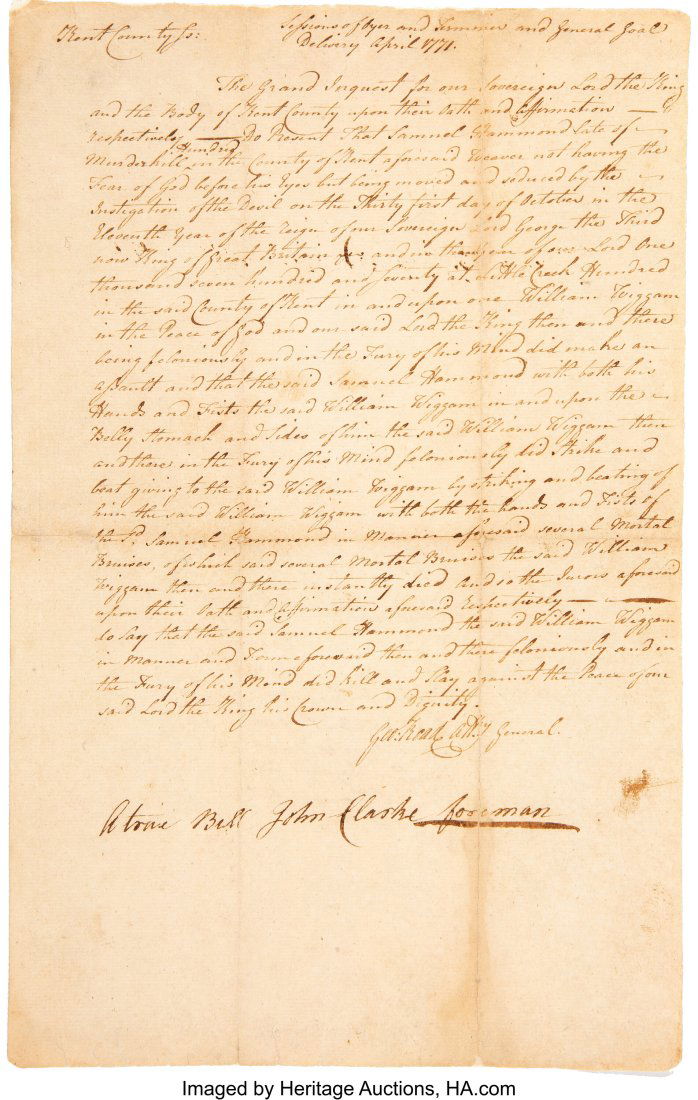 Kent County Ss:
Sessions of Oyer and Terminer and General Goal
Delivery April 1771.
The Grand Inquest for our Sovereign Lord the King
and the Body of Kent County upon their Oath and Affirmation
respectively Do Present That Samuel Hammond late of
Hundred
Murderkill in the County of Kent aforesaid Weaver not having the
Fear of God before his Eyes but being moved and seduced by the
Instigation of the Devil on the Thirty first day of October in the
Eleventh Year of the Reign of our Sovereign Lord George the Third
now King of Great Britain and in the year of our Lord One
thousand seven hundred and seventy at Little Creek Hundred
in the said County of Kent in and upon one William Wiggam
in the Peace of God and our said Lord the King then and there
being feloniously and in the Fury of his Mind did make an
assault and that the said Samuel Hammond with both his
Hands and Fists the said William Wiggam in and upon the
Belly Stomach and Sides of him the said William Wiggam then
and there in the Fury of his Mind feloniously did Strike and
beat giving to the said William Wiggam by striking and beating of
him the said William Wiggam with both the hands and Fists of
the Sd. Samuel Hammond in Manner aforesaid several Mortal
Bruises, of which said several Mortal Bruises the said William
Wiggam then and there instantly died And so the Jurors aforesaid
upon their Oath and Affirmation aforesaid respectively
do say that the said Samuel Hammond the said William Wiggam
in Manner and Form aforesaid then and there feloniously and in
the Fury of his Mind did kill and Slay against the Peace of our
said Lord the King his Crown and Dignity.
Geo: Read Atty General.
A true Bill John Clarke foreman
Imaged by Heritage Auctions, HA.com